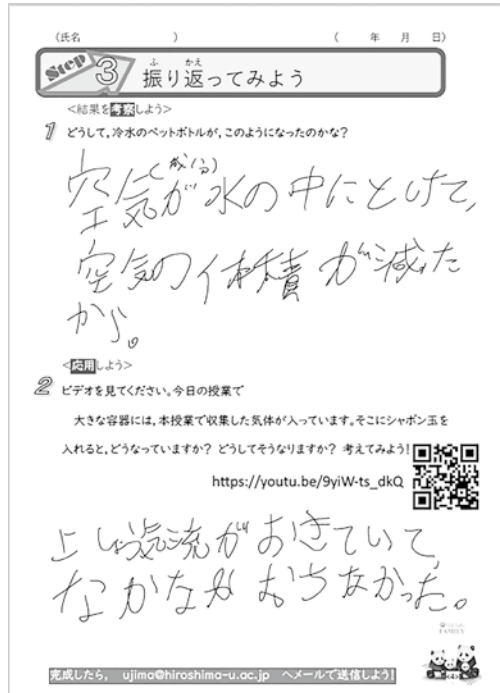 (氏名　　　　　　　)　　　　　　　(　　年　月　日)
Step 3 振り返ってみよう
ふ かえ
<結果を考察しよう>
1 どうして,冷水のペットボトルが,このようになったのかな?
(成分)
空気が水の中にとけて,
空気の体積が減った
から。
<応用しよう>
2 ビデオを見てください。今日の授業で
大きな容器には,本授業で収集した気体が入っています。そこにシャボン玉を
入れると,どうなっていますか? どうしてそうなりますか? 考えてみよう!
https://youtu.be/9yiW-ts_dkQ
上しょう気流がおきていて,
なかなかおちなかった。
FAMILY
完成したら, ujima@hiroshima-u.ac.jp へメールで送信しよう!